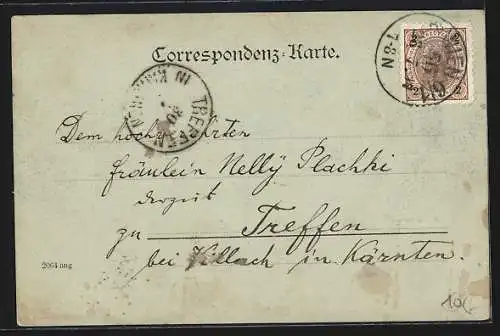 Correspondenz-Karte.
WIEN
TREFFEN IN KÄRNTEN
30
Dem
Fräulein Nelly Plachki
zu Treffen
bei Villach in Kärnten.
2064 nng
10.-